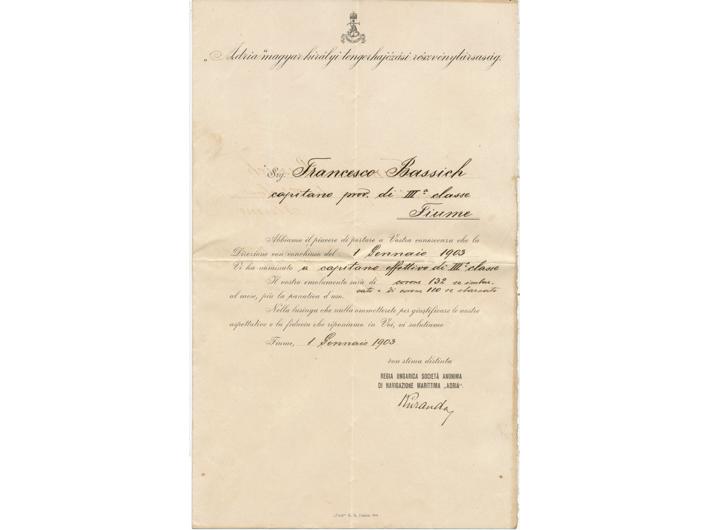 „Adria" magyar királyi tengerhajózási részvénytársaság.
Sig. Francesco Bassich
capitano prov. di III.ª classe
Fiume
Abbiamo il piacere di portare a Vostra conoscenza che la
Direzione con conchiuso del 1 Gennaio 1903
Vi ha nominato a capitano effettivo di IIIª classe
Il vostro emolumento sarà di corone 132 se imbar-
cato e di corone 110 se sbarcato
al mese, più la panatica d'uso.
Nella lusinga che nulla ommetterete per giustificare le nostre
aspettative e la fiducia che riponiamo in Voi, vi salutiamo
Fiume, 1 Gennaio 1903
con stima distinta
REGIA UNGARICA SOCIETÀ ANONIMA
DI NAVIGAZIONE MARITTIMA „ADRIA".